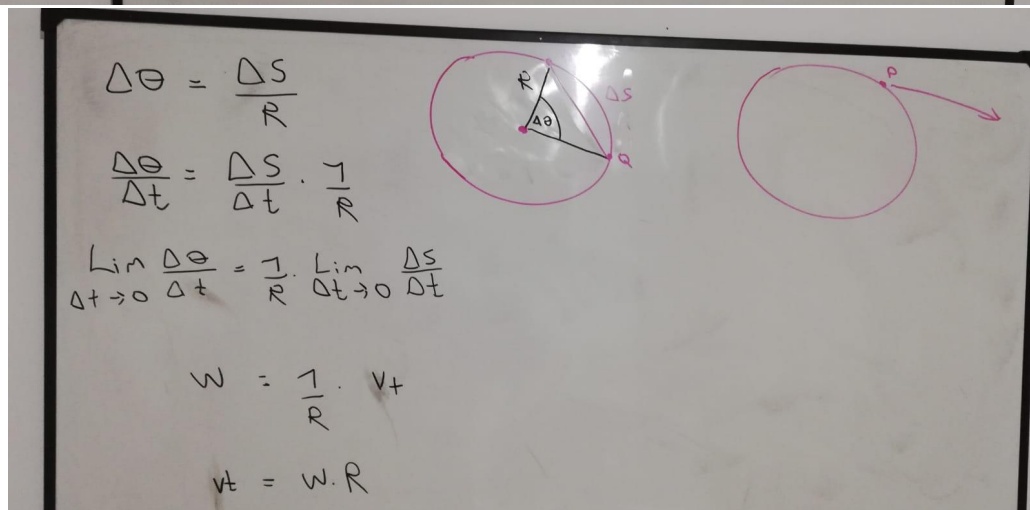 Δθ = ΔS / R
Δθ/Δt = ΔS/Δt · 1/R
Lim Δt→0 Δθ/Δt = 1/R · Lim Δt→0 ΔS/Δt
W = 1/R · Vt
Vt = W.R
R
Δθ
ΔS
Q
P